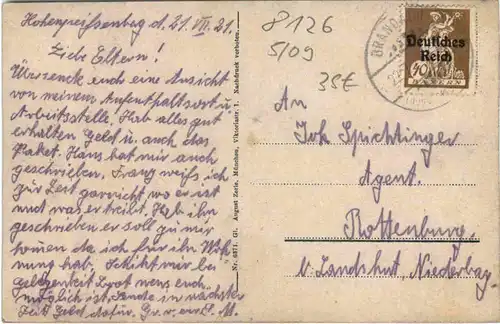 Hohenpeissenberg d. 21. VII. 21.
Liebe Eltern!
Übersende euch eine Ansicht
von meinem Aufenthaltsort u.
Arbeitsstelle. Hab alles gut
erhalten Geld u. auch das
Paket. Hans hat mir auch
geschrieben. Franz weiß ich
zur Zeit gar nicht wo er ist
und was er treibt. Hab ihm
geschrieben er soll zu mir
komen da ich für ihn
hab. Schikt mir bei
Gelegenheit Brot wens euch
möglich ist. Sende in nächster
Zeit Geld dafür. M.
Nr. 6371. Gl. August Zerle, München, Viktoriastr. 1. Nachdruck verboten.
8126
5/09
35€
Deutsches
Reich
40
BAYERN
An
Joh. Spichtinger
Agent.
Rottenburg
b. Landshut, Niederbay.